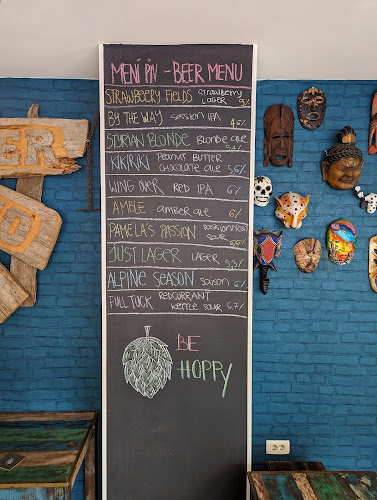 MENI PIV - BEER MENU
STRAWBEERY FIELDS STRAWBERRY LAGER 5%
BY THE WAY SESSION IPA 4,6%
STYRIAN BLONDE BLONDE ALE 5,4%
KIKIRIKI PEANUT BUTTER CHOCOLATE ALE 5,6%
WING OVER RED IPA 6%
AMBLE AMBER ALE 6%
PAMELA'S PASSION PASSIONFRUIT SOUR 6,5%
JUST LAGER LAGER 5,3%
ALPINE SEASON SAISON 6%
FULL TUCK REDCURRANT KETTLE SOUR 6,7%
BE
HOPPY
ER
O